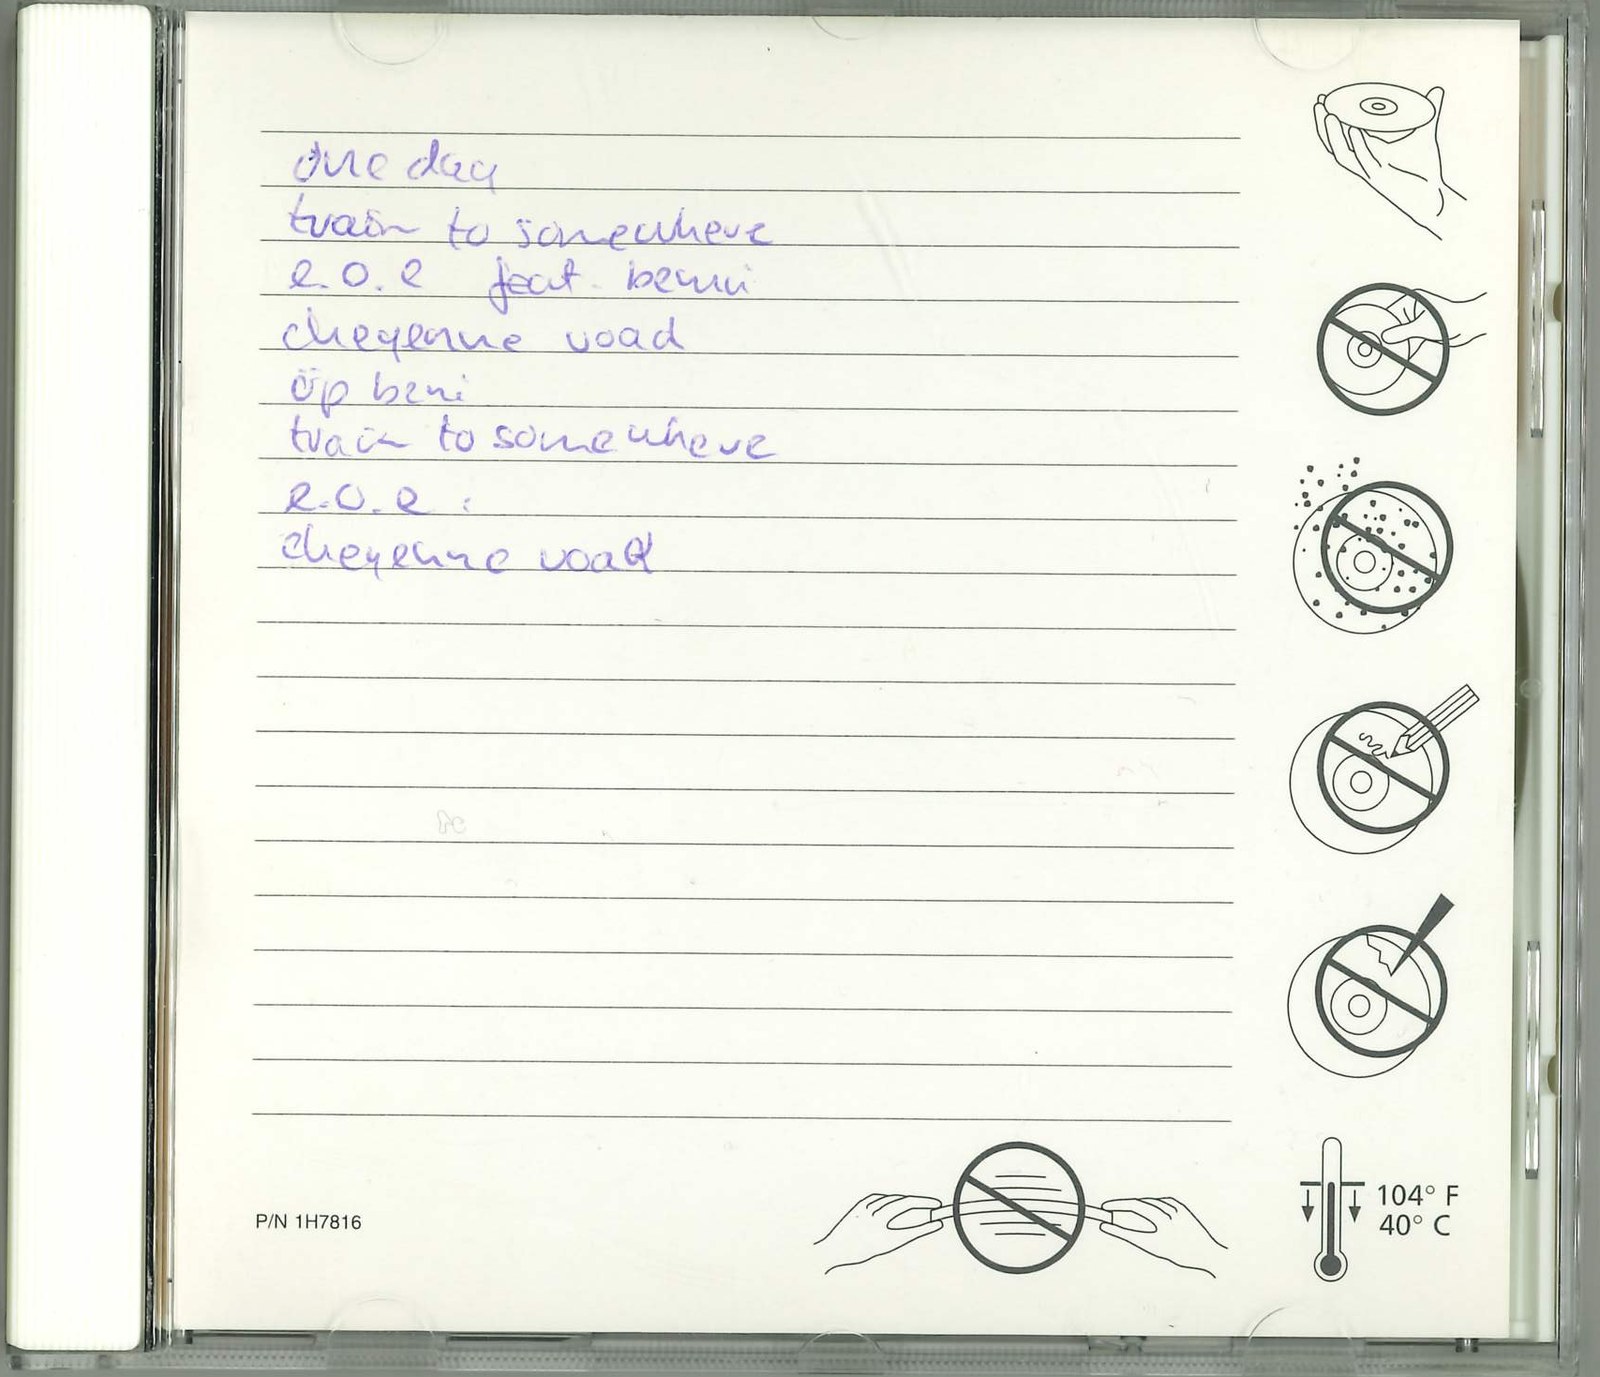 one day
train to somewhere
e.o.e feat. benni
cheyenne road
öp beni
train to somewhere
e.o.e :
cheyenne road
P/N 1H7816
104° F
40° C